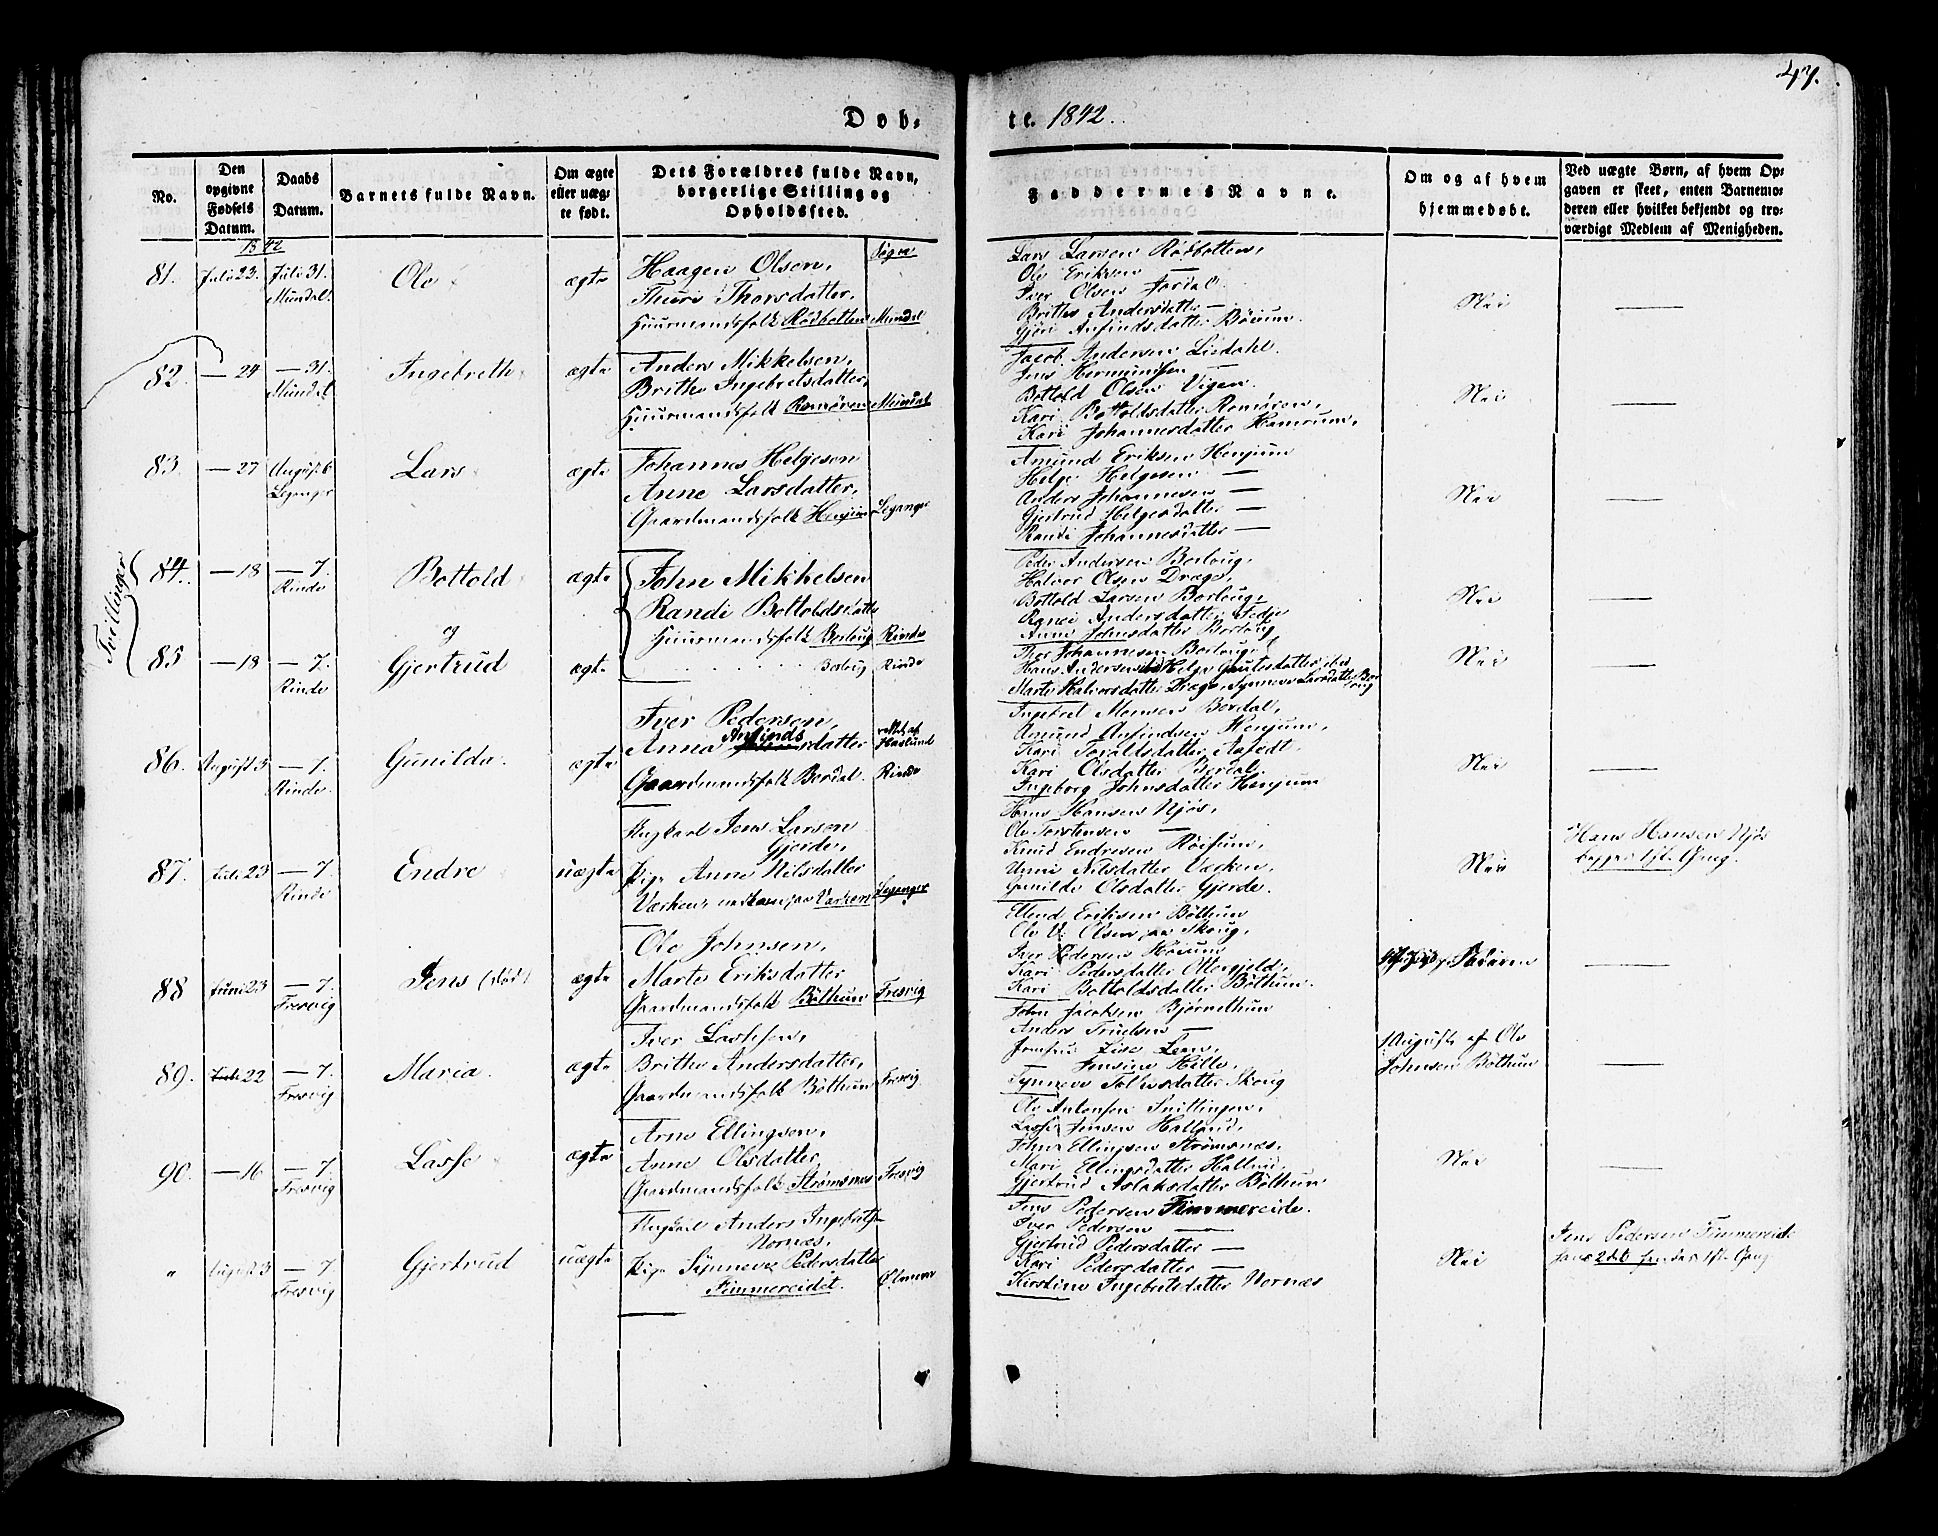 47.
Døb-
te. 1842.
No.
Den opgivne Fødsels Datum.
Daabs Datum.
Barnets fulde Navn.
Om ægte eller uægte født.
Dets Forældres fulde Navn, borgerlige Stilling og Opholdssted.
Faddernes Navne.
Om og af hvem hjemmedøbt.
Ved uægte Børn, af hvem Opgaven er skeet, enten Barnemoderen eller hvilket bekjendt og troværdigt Medlem af Menigheden.
1842
Sogn
81. Juli 23. Juli 31. Mundal. Ole ægte
Haagen Olsen,
Thuri Thorsdatter,
Huusmandsfolk Rødbotten Mundal
Lars Larsen Rødbotten,
Ole Eriksen —
Iver Olsen Jordal.
Brithe Andersdatter —
Gjøri Anfindsdatter Böium.
Nei
82. — 24 — 31. Mundal Ingebreth ægte
Anders Mikkelsen,
Brithe Ingebretsdatter,
Huusmandsfolk Romören Mundal
Jacob Andersen Lidahl.
Jens Hermundsen —
Bottold Olsen Vigen.
Kari Bottoldsdatter Romören,
Kari Johannesdatter Hamrum,
Nei
83. — 27 August 6 Leganger Lars ægte
Johannes Helgesen
Anne Larsdatter,
Gaardmandsfolk Henjum Leganger
Amund Eriksen Henjum
Helge Helgesen —
Anders Johannesen —
Gjertrud Helgesdatter —
Randi Johannesdatter —
Nei
Tvillinger
84. — 18 — 7. Rinde Bottold ægte
John Mikkelsen
Randi Bottoldsdatter
Huusmandsfolk Borlaug Rinde
Peder Andersen Borlaug,
Halvor Olsen Dræge,
Bottold Larsen Borlaug,
Ragnei Andersdatter Fedje
Anne Johnsdatter Borlaug
Nei
og
85 — 18 — 7. Rinde Gjertrud ægte
Borlaug Rinde
Thor Johannesen Borlaug,
Hans Andersen Helge Gautesdatter
Marte Halvorsdatter Dræge, Synneve Larsdatter Borlaug
Nei
86. August 5 — 7. Rinde. Gunilda. ægte
Iver Pedersen,
Anna Anfindsdatter
rettet af Haslund
Gaardmandsfolk Berdal. Rinde
Ingebret Monsen Berdal,
Amund Anfindsen Henjum,
Kari Torállsdatter Aafedt,
Kari Olsdatter Berdal,
Ingeborg Johnsdatter Henjum
Nei
87. Juli 23 — 7. Rinde Endre uægte
Ungkarl Jens Larsen
Gjerde,
Pige Anne Nilsdatter
Leganger
Hans Hansen Njøs,
Ole Torstensen —
Knud Endresen Röisum,
Anni Nilsdatter
Gunilde Olsdatter Gjerde.
Nei
Hans Hansen Njøs
begges 1ste Gang.
88 Juni 23 — 7. Fresvig Jens (død) ægte
Ole Johnsen,
Marte Eriksdatter
Gaardmandsfolk Böthum Fresvig
Ellend Eriksen Böthum
Ole Olsen Skoug,
Iver Pedersen Höium
Kari Pedersdatter Ottergjeld,
Kari Bottoldsdatter Böthum.
89. Juli 22 — 7. Fresvig Maria. ægte
Iver Lassesen,
Brithe Andersdatter,
Gaardmandsfolk Böthum Fresvig
John Jacobsen Bjørnethun
Anders Truelsen —
Jomfru Lise Leem,
— Jensine Hille,
Synneve Tollevsdatter Skoug
1 August af Ole
Johnsen Böthum
90. — 16 — 7. Fresvig Lasse ægte
Arne Ellingsen,
Anne Olsdatter,
Gaardmandsfolk Strömsnes Fresvig
Ole Antonsen Snillingen,
Lasse Jensen Halland,
John Ellingsen Strömsnes,
Mari Ellingsdatter Halland,
Gjertrud Aslaksdatter Böthum
Nei
" August 3 — 7. Fresvig Gjertrud uægte
Ungkarl Anders Ingebretsen
Nornæs,
Pige Synneve Pedersdatter
Fimmereidet. Ølmem
Jens Pedersen Fimmereide.
Iver Pedersen —
Gjertrud Pedersdatter —
Kari Pedersdatter —
Kirstine Ingebretsdatter Nornæs
Nei
Jens Pedersen Fimmereide
hans 2det hendes 1ste Gang